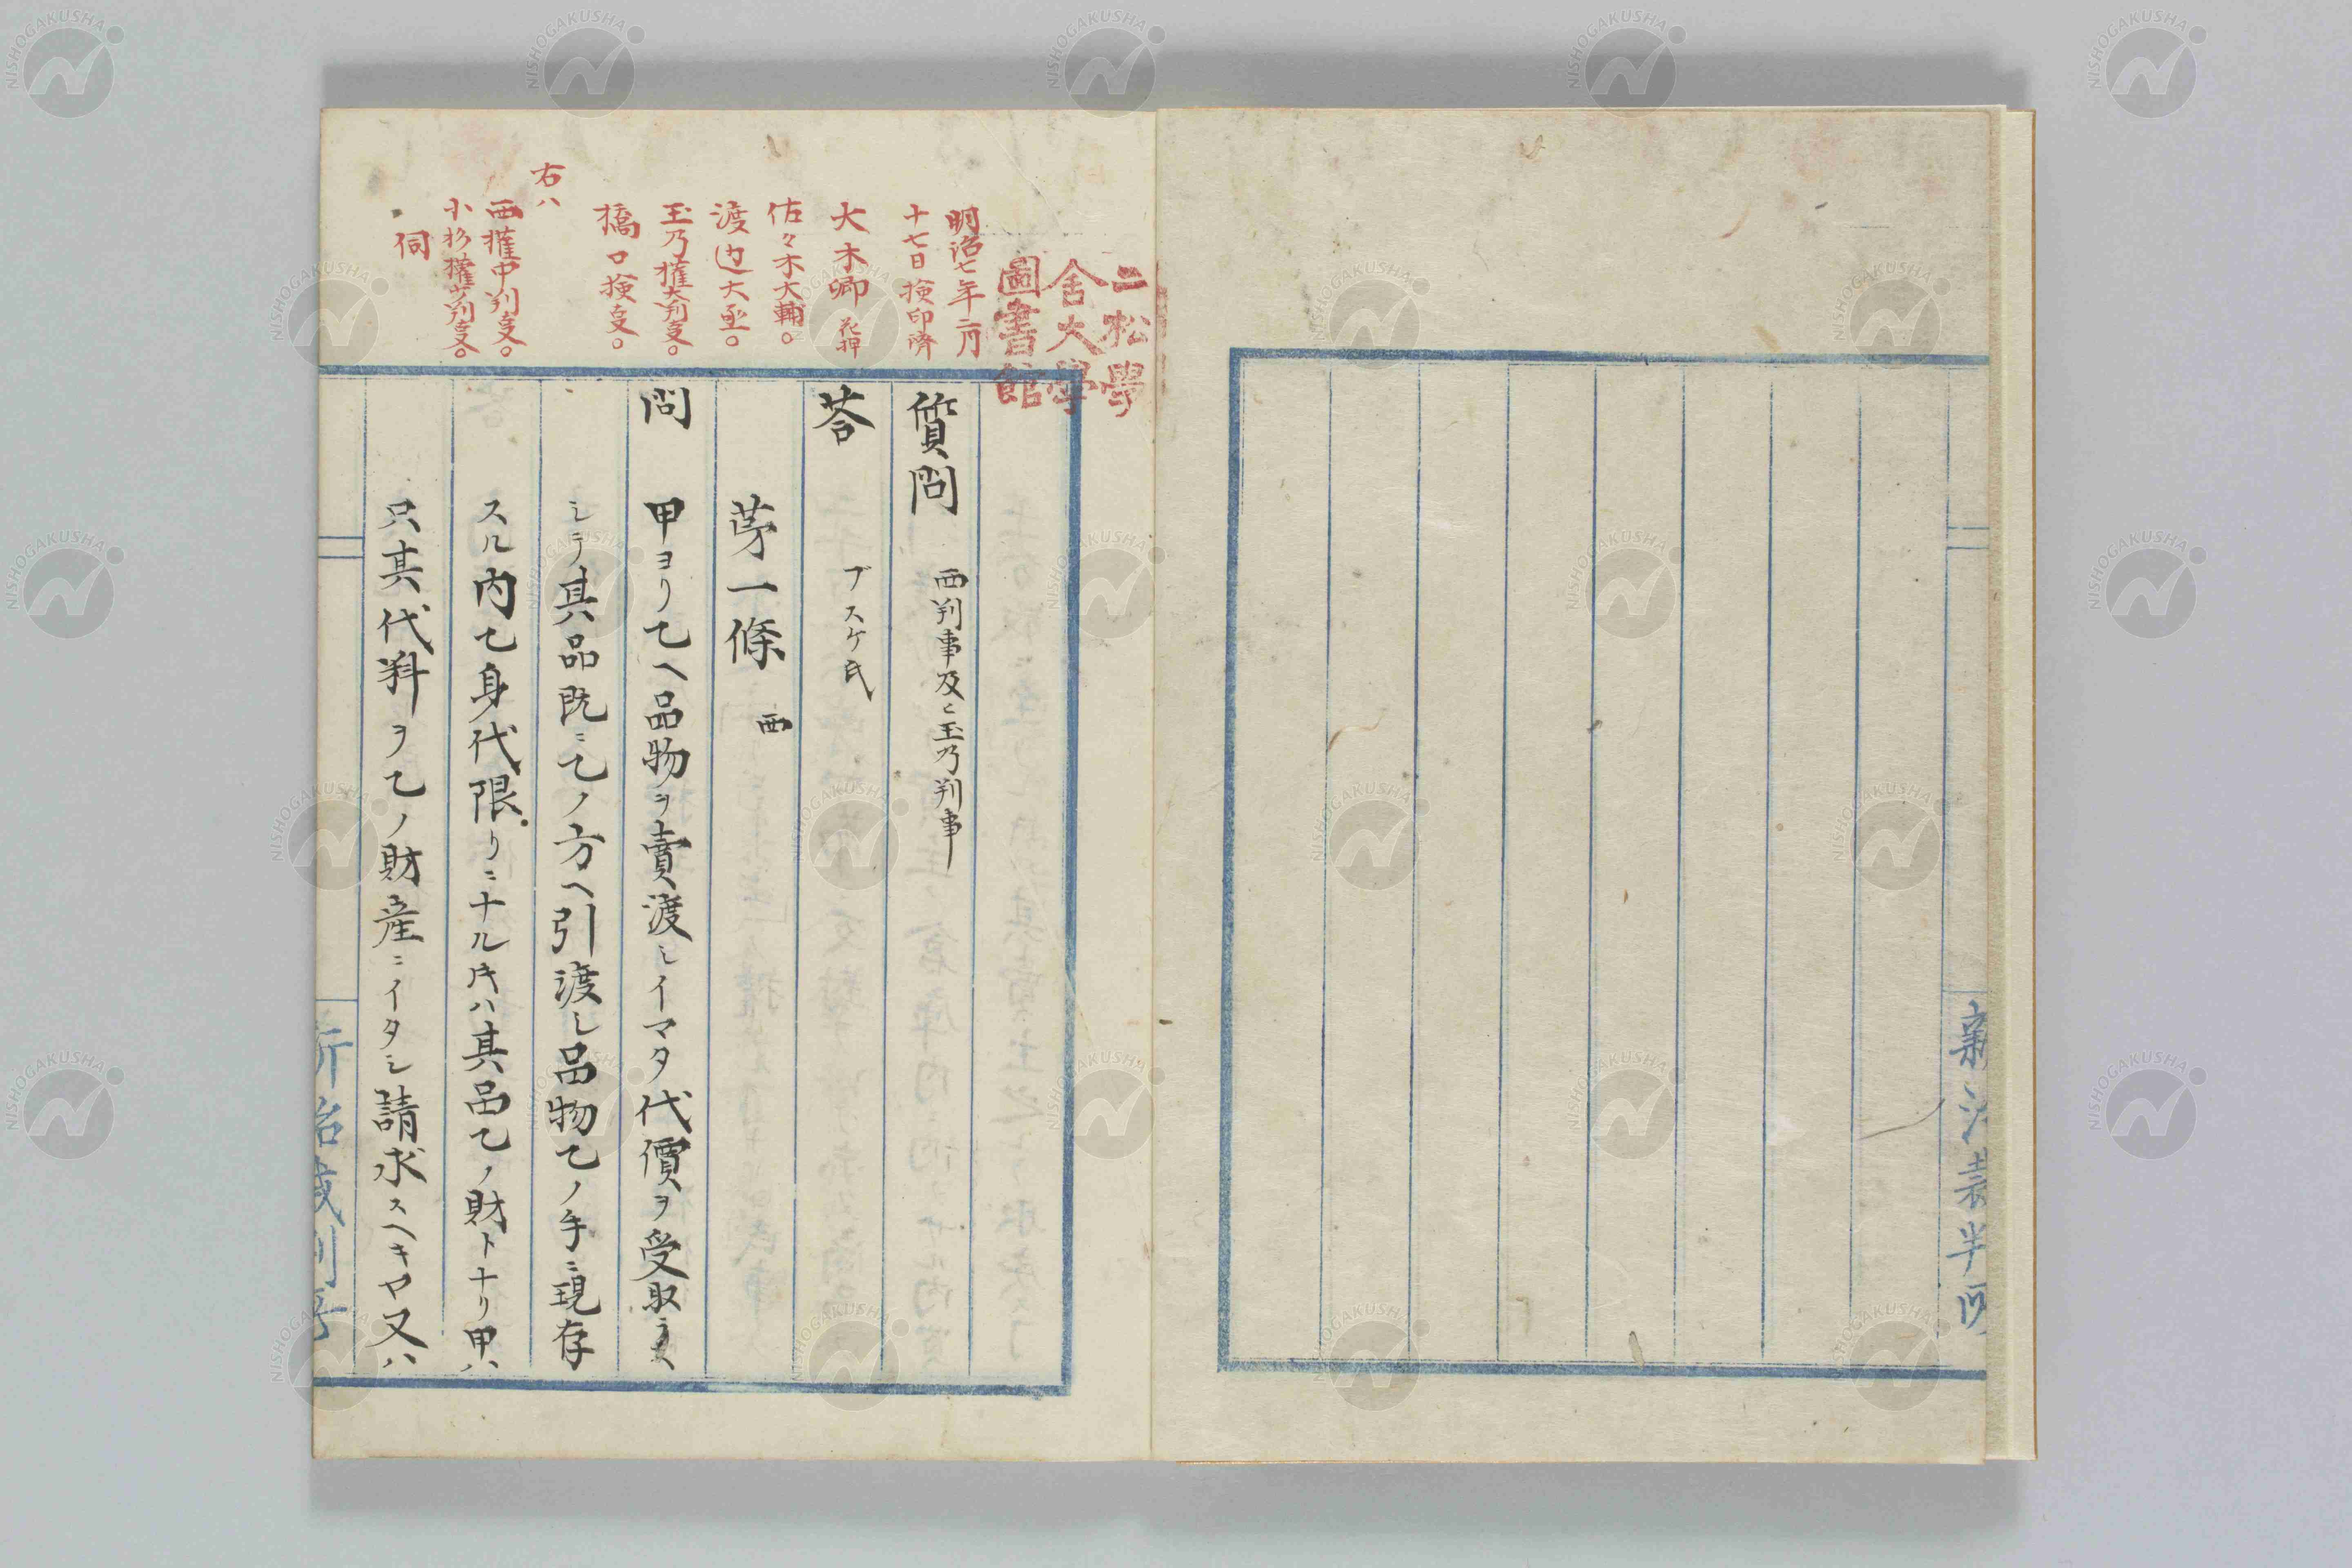 新治裁判所
二松學
舍大學
圖書館
明治七年二月
十七日検印濟
大木卿 花押
佐々木大輔○
渡辺大丞○
玉乃権大判事○
橋口検事○
右ハ
西権中判事○
小杉権少判事○
伺
質問 西判事及ヒ玉乃判事
荅 ブスケ氏
苐一條 西
問 甲ヨリ乙ヘ品物ヲ賣渡シイマタ代價ヲ受取ラス
シテ其品既ニ乙ノ方ヘ引渡し品物乙ノ手ニ現存
スル内乙身代限リニナル時ハ其品乙ノ財トナリ甲ハ
只其代料ヲ乙ノ財産ニイタシ請求スヘキヤ又ハ
新治裁判所
NISHOGAKUSHA